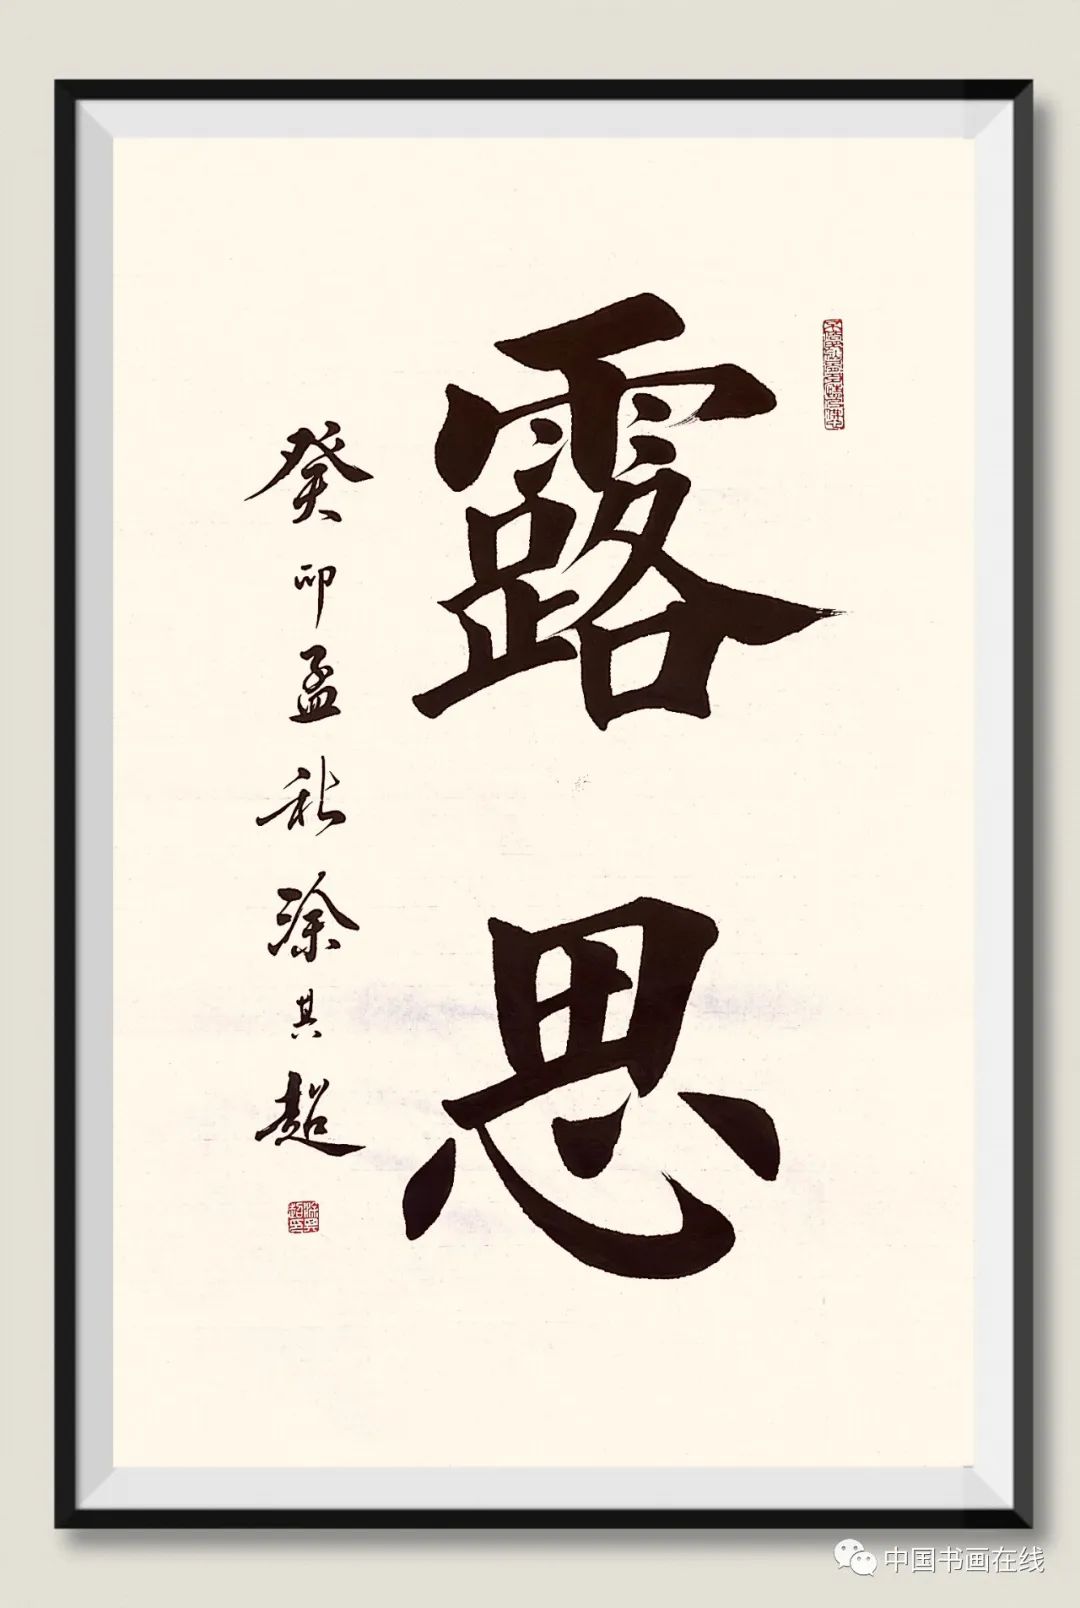 露思
癸卯孟秋涂其超
中国书画在线